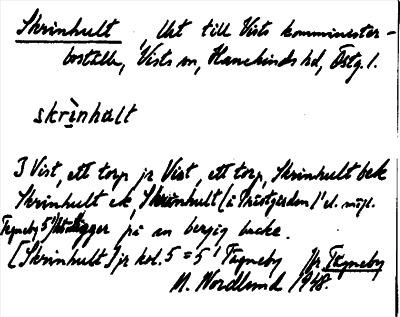 Skrinhult, Urt till Vists komminister-
boställe, Vists sn, Hanekinds hd, Östg. l.
skrìnhalt
I Vist, ett torp jr Vist, ett torp, Skrinhult bek
Skrinhult ek, Skrinhult (å Prästgården) 1 el. möjl.
Tegneby 5 ligger på en bergig backe.
[Skrinhult] jr kol. 5 = 5 1 Tegneby jfr Tegneby
M. Nordlund 1948.